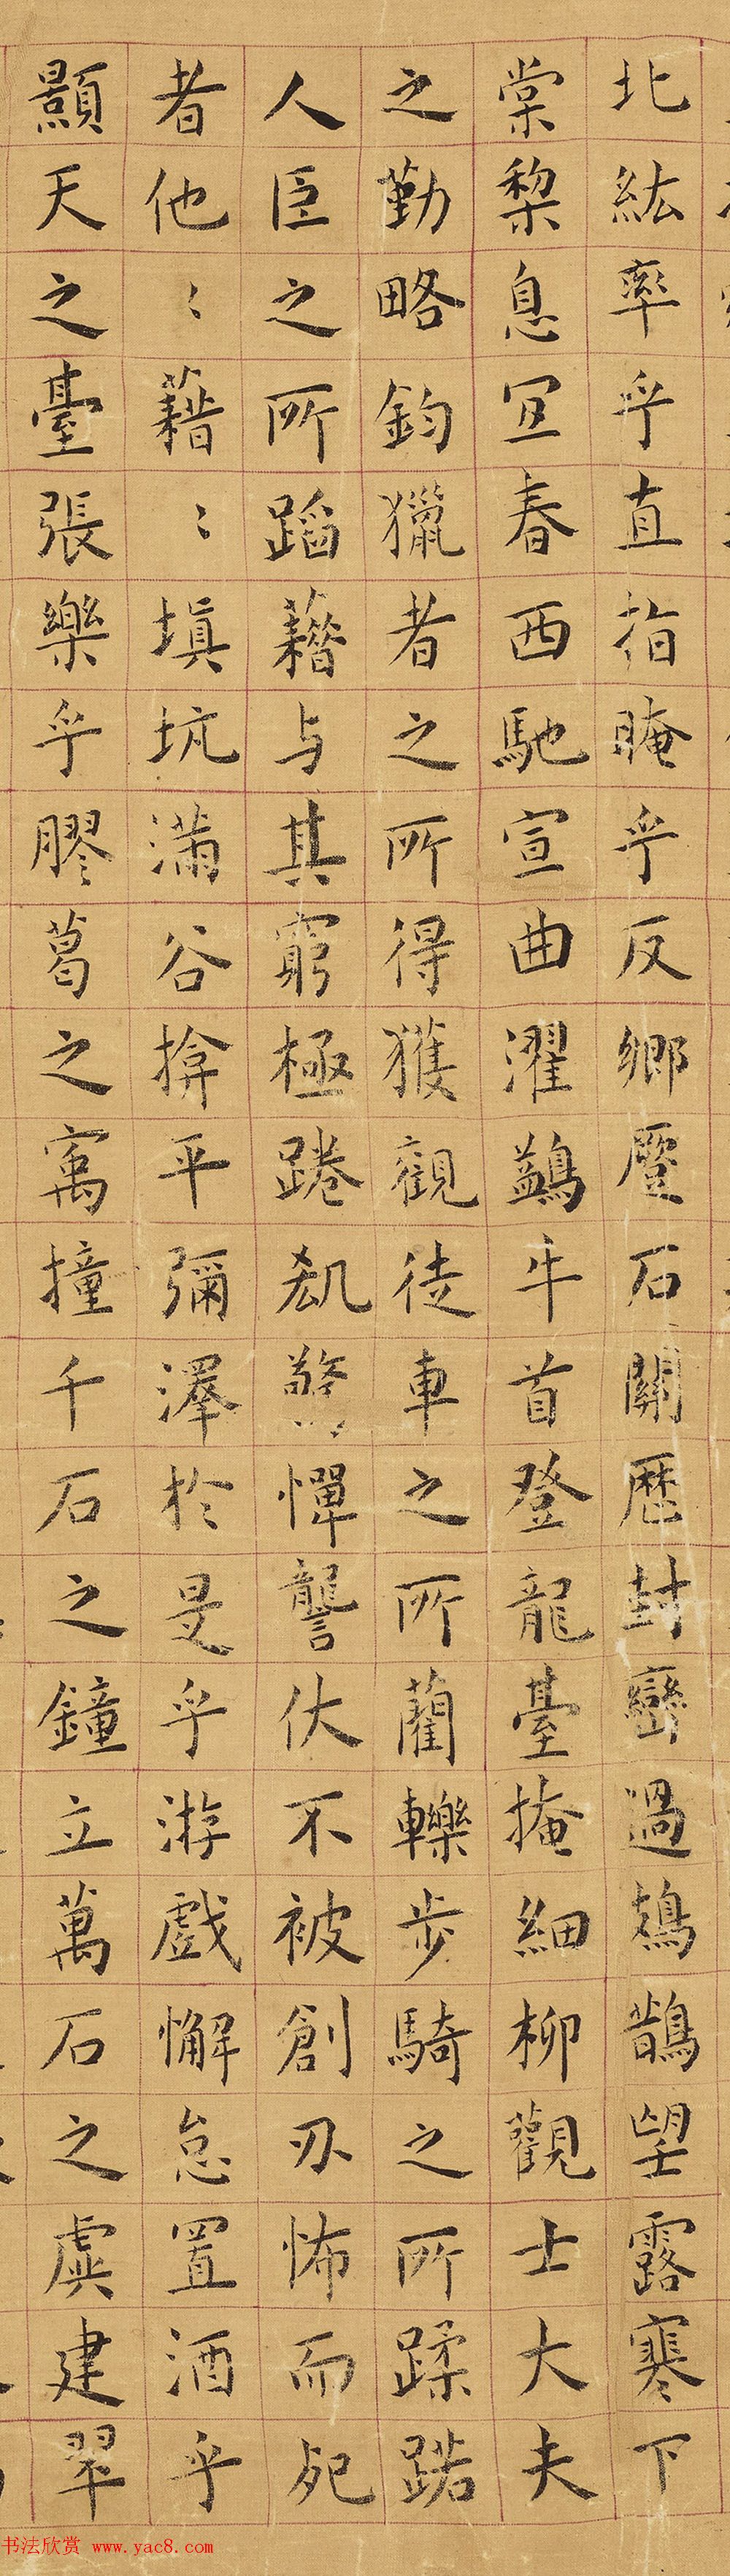 北紘率乎直指晻乎反鄉蹷石關歷封巒過鳷鵲望露寒下
棠棃息宜春西馳宣曲濯鷁牛首登龍臺掩細柳觀士大夫
之勤略鈞獵者之所得獲觀徒車之所藺轢步騎之所蹂踖
人臣之所蹈藉与其窮極踡㕁驚憚讋伏不被創刃怖而死
者他〻藉〻塡坑滿谷揜平彌澤於是乎游戲懈怠置酒乎
顥天之臺張樂乎膠葛之寓撞千石之鐘立萬石之虡建翠
书法欣赏 www.yac8.com